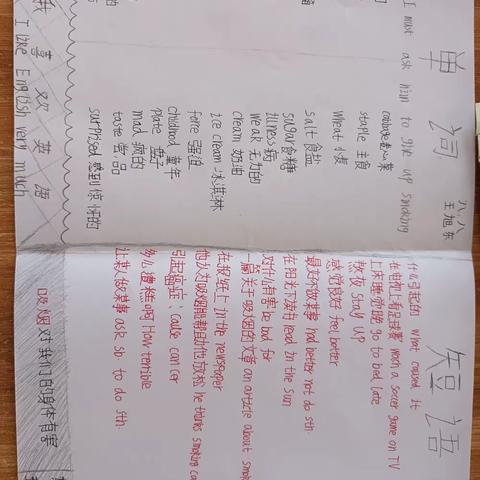 单词
短语
八.八
王旭东
I must ask him to give up smoking
cabbage 卷心菜
staple 主食
wheat 小麦
salt 食盐
sugar 食糖
illness 病
weak 无力的
cream 奶油
ice cream 冰淇淋
force 强迫
childhood 童年
plate 盘子
mad 疯的
taste 尝,品
surprised 感到惊讶的
什么引起的 what caused it
在电视上看足球赛 watch a soccer game on TV
上床睡觉晚 go to bed late
熬夜 stay up
感觉良好 feel better
最好不做某事 had better not do sth.
在阳光下读书 read in the sun
对什么有害 be bad for
一篇关于吸烟的文章 an article about smok
在报纸上 in the newspaper
他认为吸烟能帮助他放松 he thinks smoking ca
引起癌症: cause cancer
多么糟糕啊 How terrible
让某人做某事 ask sb to do sth.
我喜欢英语
I like English very much
吸烟对我们的身体有害